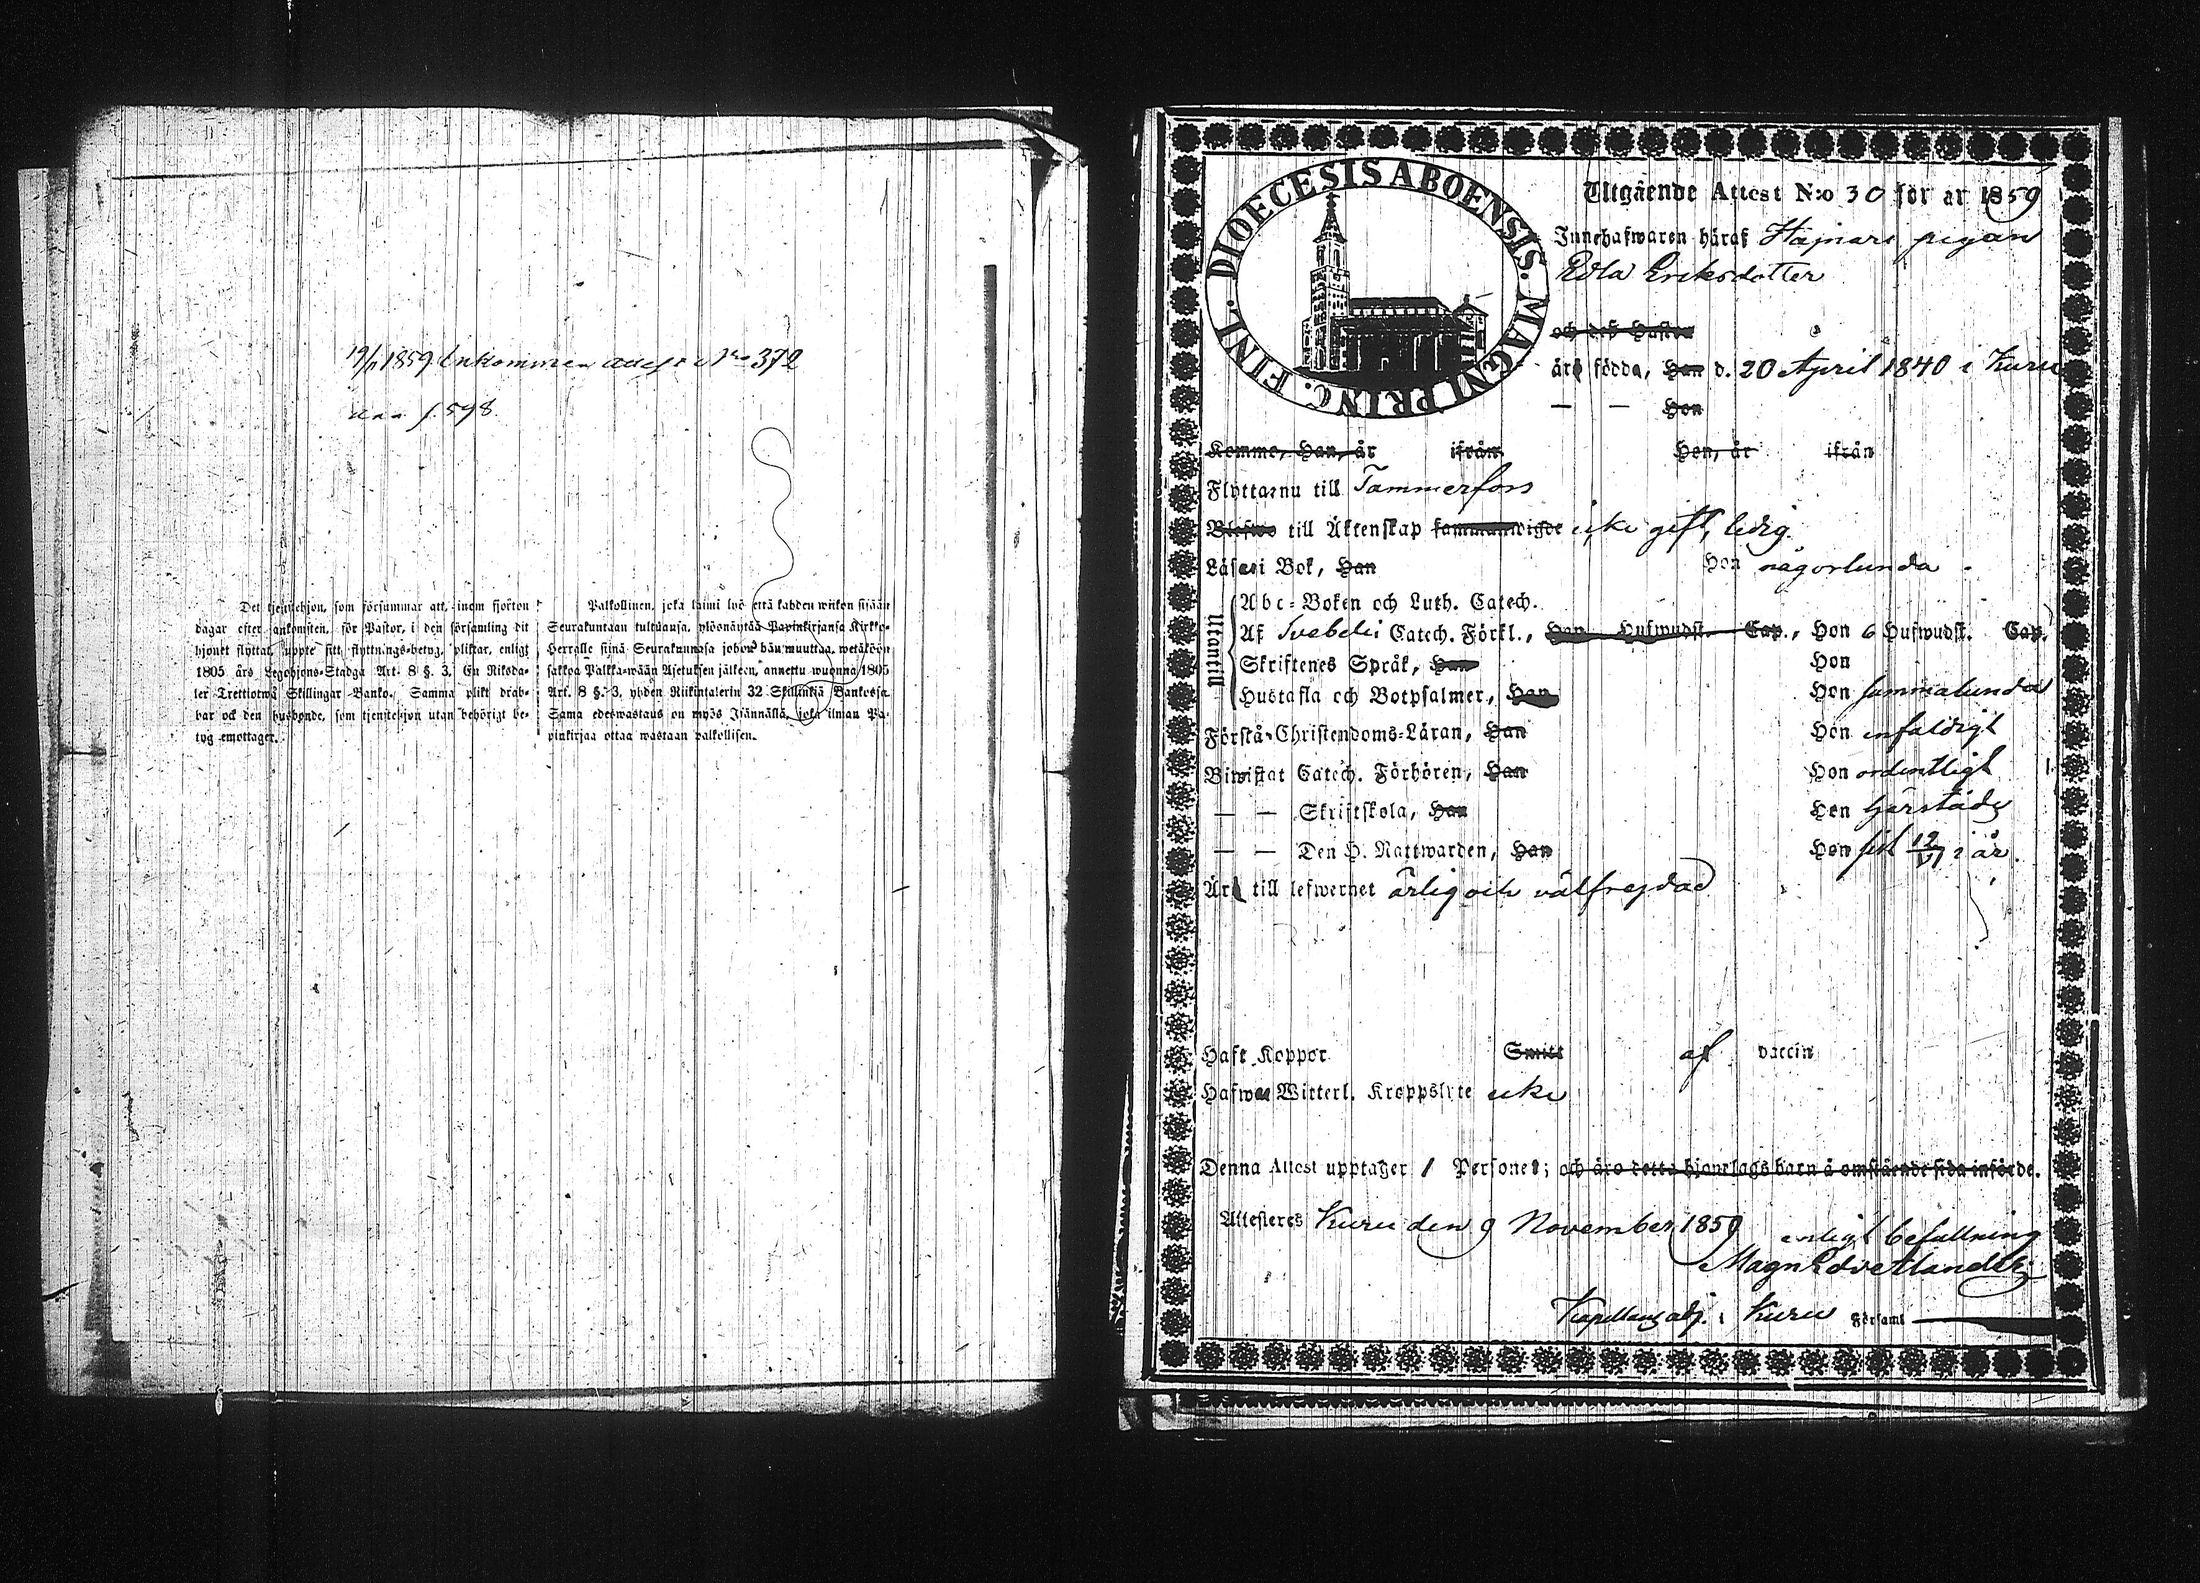 19/11 1859. Inkommen attest No 372
f. 598.
Det tjenstehjon, som försummar att, inom fjorton
dagar efter ankomsten, för Pastor, i den församling dit
hjonet flyttat, uppte sitt flyttnings-betyg, pliktar, enligt
1805 års Legohjons-Stadga Art. 8 §. 3, En Riksda-
ler Trettiotwå Skillingar Banko. Samma plikt drab-
bar ock den husbonde, som tjenstehjon utan behörigt be-
tyg emottager.
Palkollinen, joka laimi lyö että kahden wiikon sisään
Seurakuntaan tultuansa, ylöonäyttää Papinkirjansa Kirkko-
Herralle siinä Seurakunnasa johon hän muuttaa, wetäköön
sakkoa Palkka-wään Asetuksen jälkeen, annettu wuonna 1805
Art. 8 §. 3, yhden Riikintalerin 32 Skillinkiä Bankossa
Sama edeswastaus on myös Isännällä, joka ilman Pa-
pinkirjaa ottaa wastaan palkollisen.
DIOECESIS ABOENSIS. MAGNI PRINC. FINL.
Utgående Attest N:o 30 för år 1859
Innehafwaren häraf Hajnari pigan
Edla Eriksdotter
och deß Hustru
äro födda, Han d. 20 April 1840 i Kuru
— — Hon
Komne, Han, år ifrån Hon, år ifrån
Flytta nu till Tammerfors
Blefwo till Äktenskap sammanwigde icke gift, ledig.
Läsa i Bok, Han Hon någorlunda
Utantill
Abc-Boken och Luth. Catech.
Af Svebelii Catech. Förkl., Han Hufwudst. Cap., Hon 6 Hufwudst. Cap.
Skriftenes Språk, Han Hon
Hustafla och Botpsalmer, Han Hon sammalunda
Förstå Christendoms-Läran, Han Hon enfaldigt
Biwistat Catech. Förhören, Han Hon ordentligt
— — Skriftskola, Han Hon härstädes
— — Den H. Nattwarden, Han Hon sist 12/VI i år.
Är till lefwernet ärlig och välfrejdad
Haft Koppor Smitt af vaccin
Hafwa Witterl. Kroppslyte icke
Denna Attest upptager 1 Personer; och äro detta hjonelags barn å omstående sida införde.
Attesteres Kuru den 9 November 1859
enligt befallning
Magn Edv Alander
Kapellans adj. i Kuru Församl